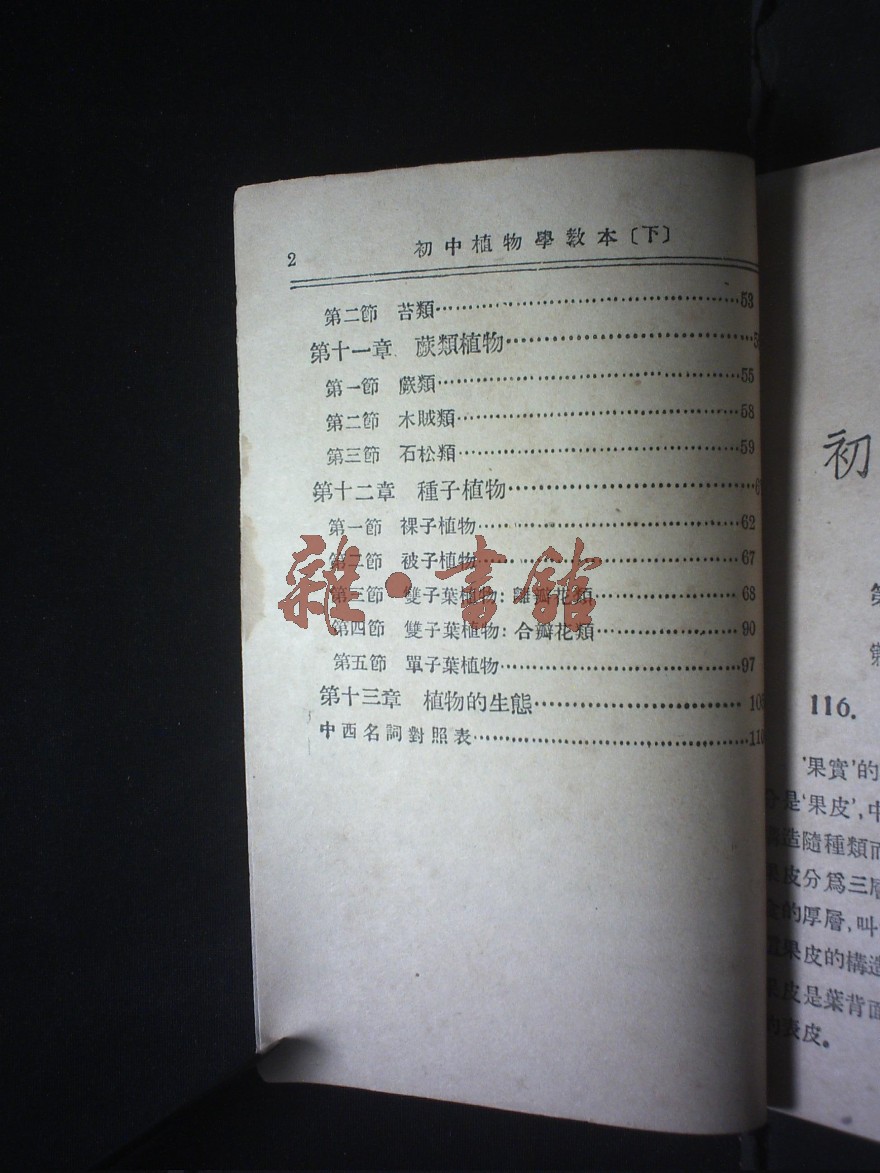 2
初中植物學教本〔下〕
第二節 苔類 53
第十一章 蕨類植物
第一節 蕨類 55
第二節 木賊類 58
第三節 石松類 59
第十二章 種子植物
第一節 裸子植物 62
第二節 被子植物 67
第三節 雙子葉植物：離瓣花類 68
第四節 雙子葉植物：合瓣花類 90
第五節 單子葉植物 97
第十三章 植物的生態
中西名詞對照表
雜·書館
初
第
第
116.
‘果實’的
是‘果皮’，中
造隨種類而
皮分爲三層
的厚層，叫
果皮的構造
皮是葉背面
表皮。